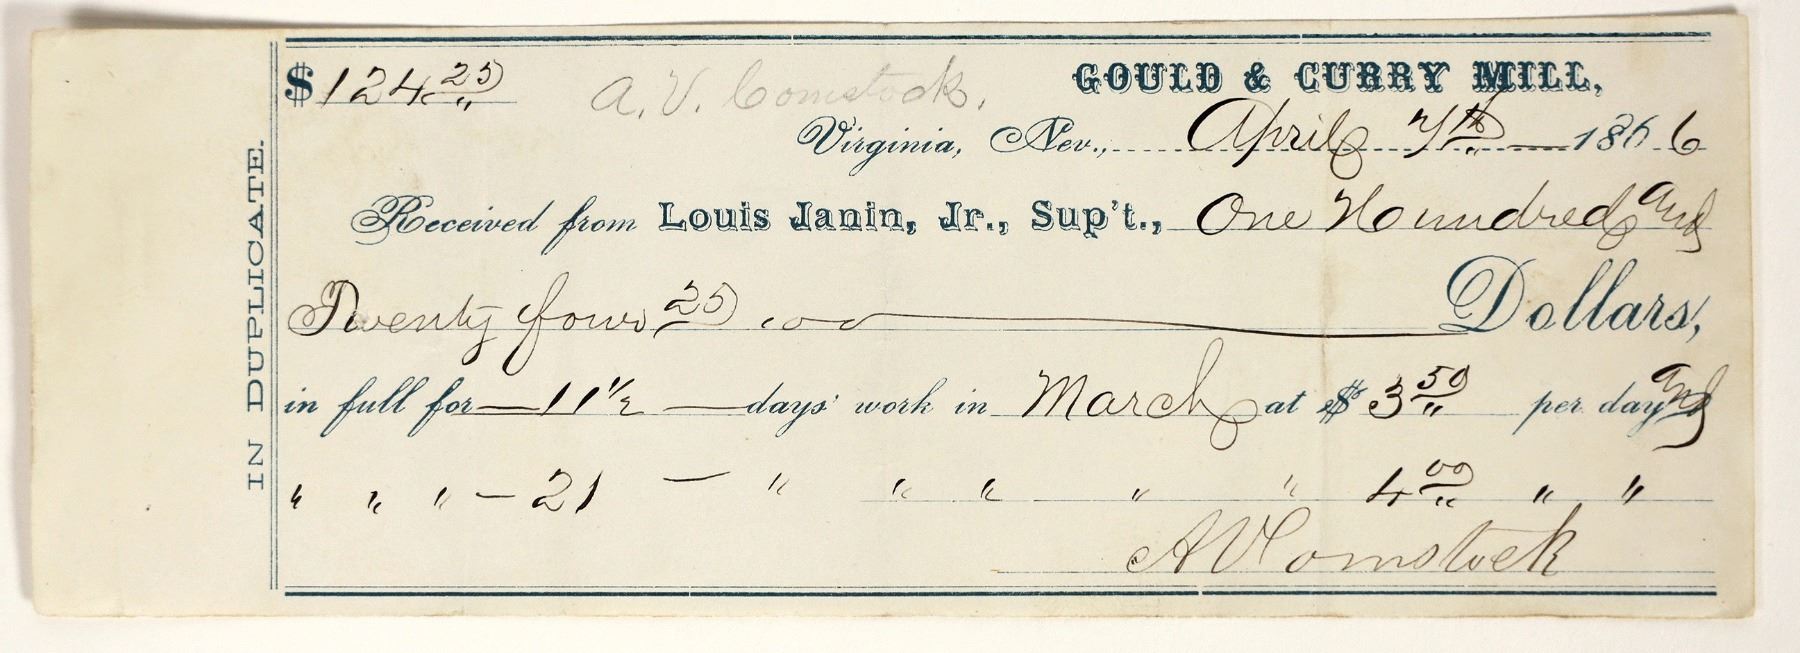 IN DUPLICATE.
$ 124 25 A. V. Comstock. GOULD & CURRY MILL,
Virginia, Nev., April 7th 1866
Received from Louis Janin, Jr., Sup't., One Hundred and
Twenty four 25/100 Dollars,
in full for 11 1/2 days' work in March at $ 3 50 per day and
" " " 21 " " " " " 4 00 " "
A V Comstock